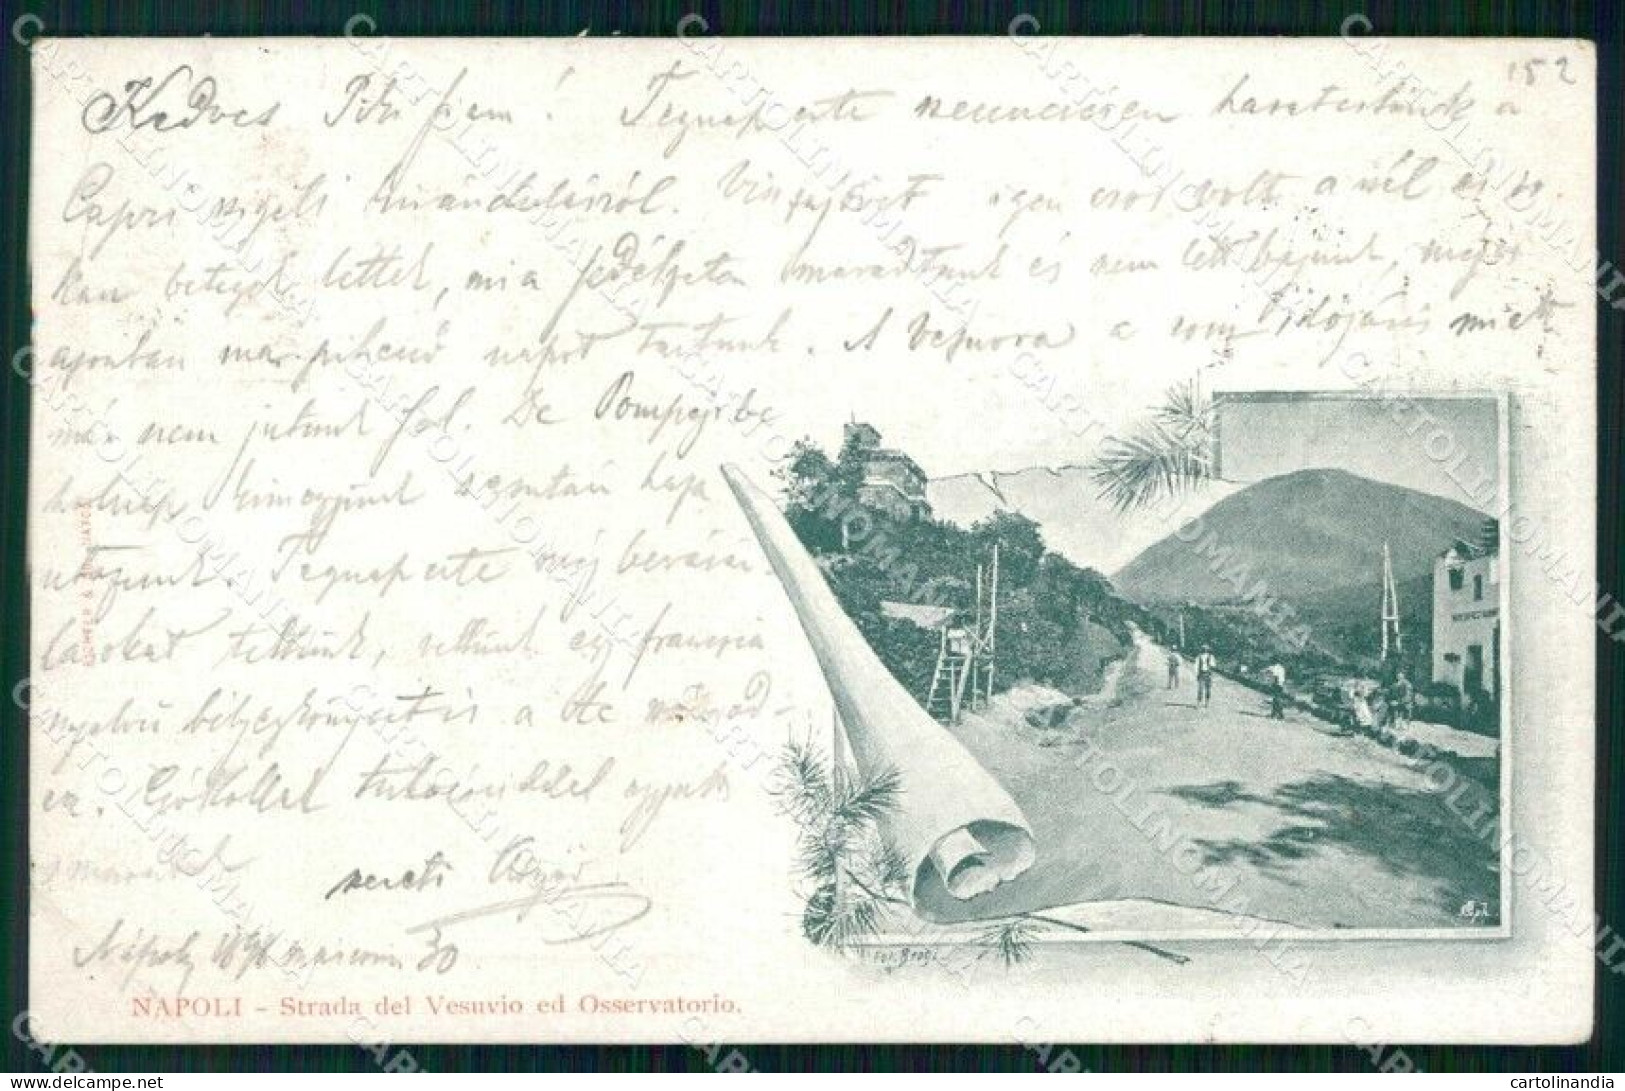 152
Kedves Piki fiam! Tegnap este szerencsésen hazatértünk a
Capri szigeti kirándulásról. Visszajövet igen erős volt a szél és so-
kan betegek lettek, mi a fedélzeten maradtunk és nem lett bajunk, mégis
azonban ma pihenő napot tartunk. A Vezuvra a rossz időjárás miatt
már nem jutunk fel. De Pompejibe
holnap kimegyünk azután haza
utazunk. Tegnap este még bevásár-
lásokat tettünk, vettünk egy francia
nyelvű bélyegkönyvet is a te
Csókollak ezer
szerető
Nápoly 30
NAPOLI - Strada del Vesuvio ed Osservatorio.
Fot. Brogi
CARTOLINOMANIA
cartolinandia